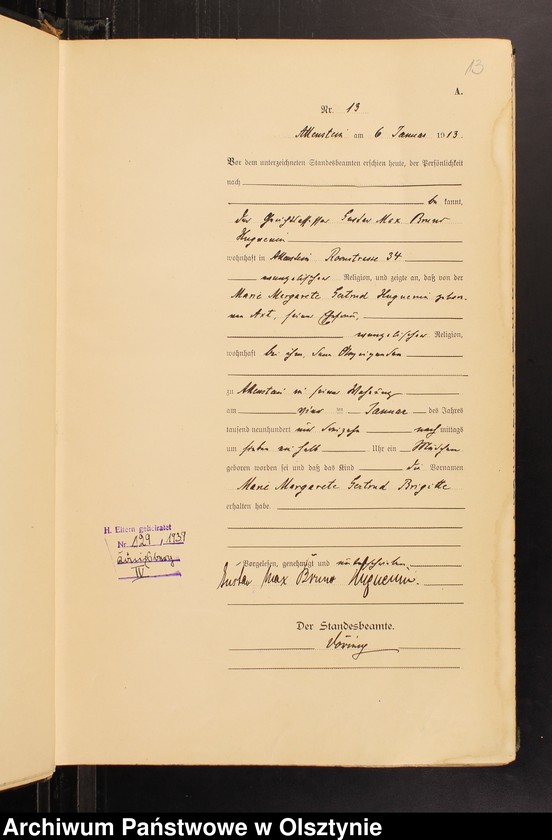 13
A.
Nr. 13
Allenstein am 6 Januar 1913.
Vor dem unterzeichneten Standesbeamten erschien heute, der Persönlichkeit
nach
be kannt,
der Gerichtsassessor Gustav Max Bruno
Huguenin
wohnhaft in Allenstein Roonstrasse 34
evangelischer Religion, und zeigte an, daß von der
Marie Margarete Gertrud Huguenin gebor-
nen Axt, seiner Ehefrau,
evangelischer Religion,
wohnhaft bei ihm, dem Anzeigenden
zu Allenstein in seiner Wohnung
am vier ten Januar des Jahres
tausend neunhundert und dreizehn nach mittags
um sieben ein halb Uhr ein Mädchen
geboren worden sei und daß das Kind die Vornamen
Marie Margarete Gertrud Brigitte
erhalten habe.
H. Eltern geheiratet
Nr. 129, 1939
Königsberg
IV
Vorgelesen, genehmigt und unterschrieben
Gustav Max Bruno Huguenin.
Der Standesbeamte.
Archiwum Państwowe w Olsztynie